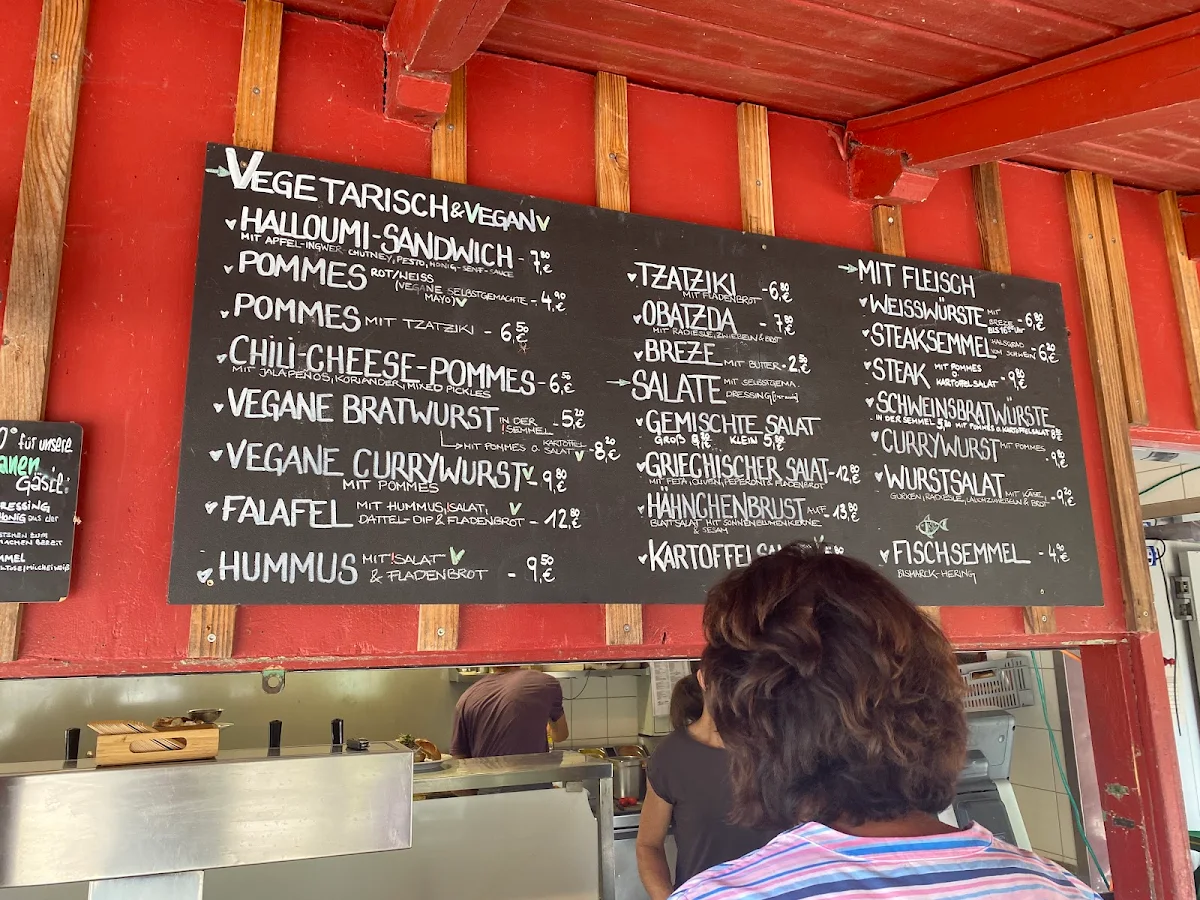 VEGETARISCH & VEGAN
HALLOUMI-SANDWICH - 7,80€
MIT APFEL-INGWER-CHUTNEY, PESTO, HONIG-SENF-SAUCE
POMMES ROT/WEISS
(VEGANE SELBSTGEMACHTE MAYO) - 4,90€
POMMES MIT TZATZIKI - 6,50€
CHILI-CHEESE-POMMES - 6,50€
MIT JALAPEÑOS, KORIANDER, MIXED PICKLES
VEGANE BRATWURST IN DER SEMMEL - 5,20€
MIT POMMES O. KARTOFFELSALAT - 8,20€
VEGANE CURRYWURST - 9,80€
MIT POMMES
FALAFEL MIT HUMMUS, SALAT,
DATTEL-DIP & FLADENBROT - 12,80€
HUMMUS MIT SALAT
& FLADENBROT - 9,50€
TZATZIKI - 6,80€
MIT FLADENBROT
OBATZDA - 7,80€
MIT RADIESLE, ZWIEBELN & BROT
BREZE MIT BUTTER - 2,50€
SALATE MIT SELBSTGEMA.
DRESSING
GEMISCHTE SALAT
GROß KLEIN 5,80€
GRIECHISCHER SALAT - 12,80€
MIT FETA, OLIVEN, PEPERONI & FLADENBROT
HÄHNCHENBRUST AUF - 13,80€
BLATTSALAT MIT SONNENBLUMENKERNE
& SESAM
KARTOFFELSA
MIT FLEISCH
WEISSWÜRSTE MIT BREZE - 6,80€
BIS 16:00 UHR
STEAKSEMMEL HALSGRAD VOM SCHWEIN - 6,20€
STEAK MIT POMMES
O. KARTOFFELSALAT - 9,80€
SCHWEINSBRATWÜRSTE
IN DER SEMMEL MIT POMMES O. KARTOFFELSALAT
CURRYWURST MIT POMMES - 9,20€
WURSTSALAT MIT KÄSE, - 9,20€
GURKEN, RADIESLE, LAUCHZWIEBELN & BROT
FISCHSEMMEL - 4,90€
BISMARCK-HERING
für unsere
anen
Gäste:
RESSING
HONIG aus der
MACHEN BEREIT